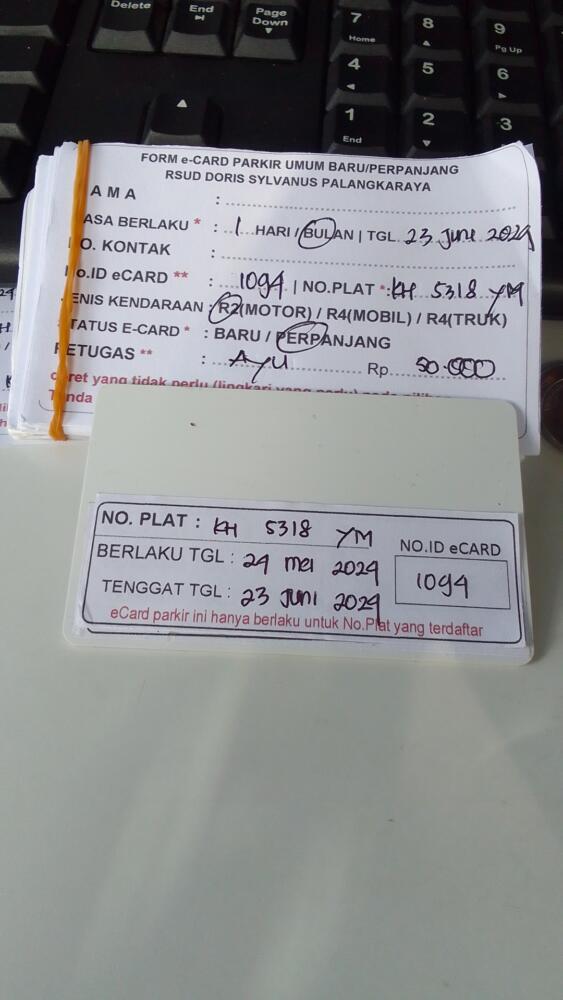 Delete
End
Page
Down
7
Home
8
9
Pg Up
4
5
6
1
End
2
3
FORM e-CARD PARKIR UMUM BARU/PERPANJANG
RSUD DORIS SYLVANUS PALANGKARAYA
AMA :
ASA BERLAKU * : 1 HARI / BULAN | TGL 23 Juni 2024
O. KONTAK :
No.ID eCARD ** : 1094 | NO.PLAT * : KH 5318 YM
JENIS KENDARAAN : R2(MOTOR) / R4(MOBIL) / R4(TRUK)
TATUS E-CARD * : BARU / PERPANJANG
PETUGAS ** : AYU Rp 50.000
oret yang tidak perlu (lingkari yang perlu)
Tanda
NO. PLAT : KH 5318 YM
BERLAKU TGL : 24 mei 2024
TENGGAT TGL : 23 Juni 2024
NO.ID eCARD
1094
eCard parkir ini hanya berlaku untuk No.Plat yang terdaftar